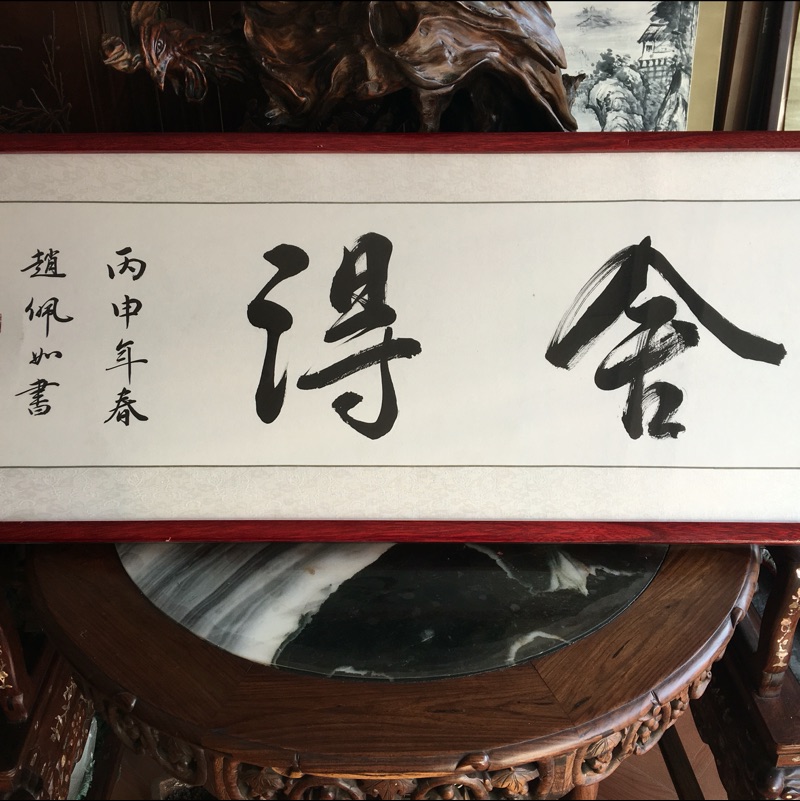 舍得
丙申年春
趙佩如書